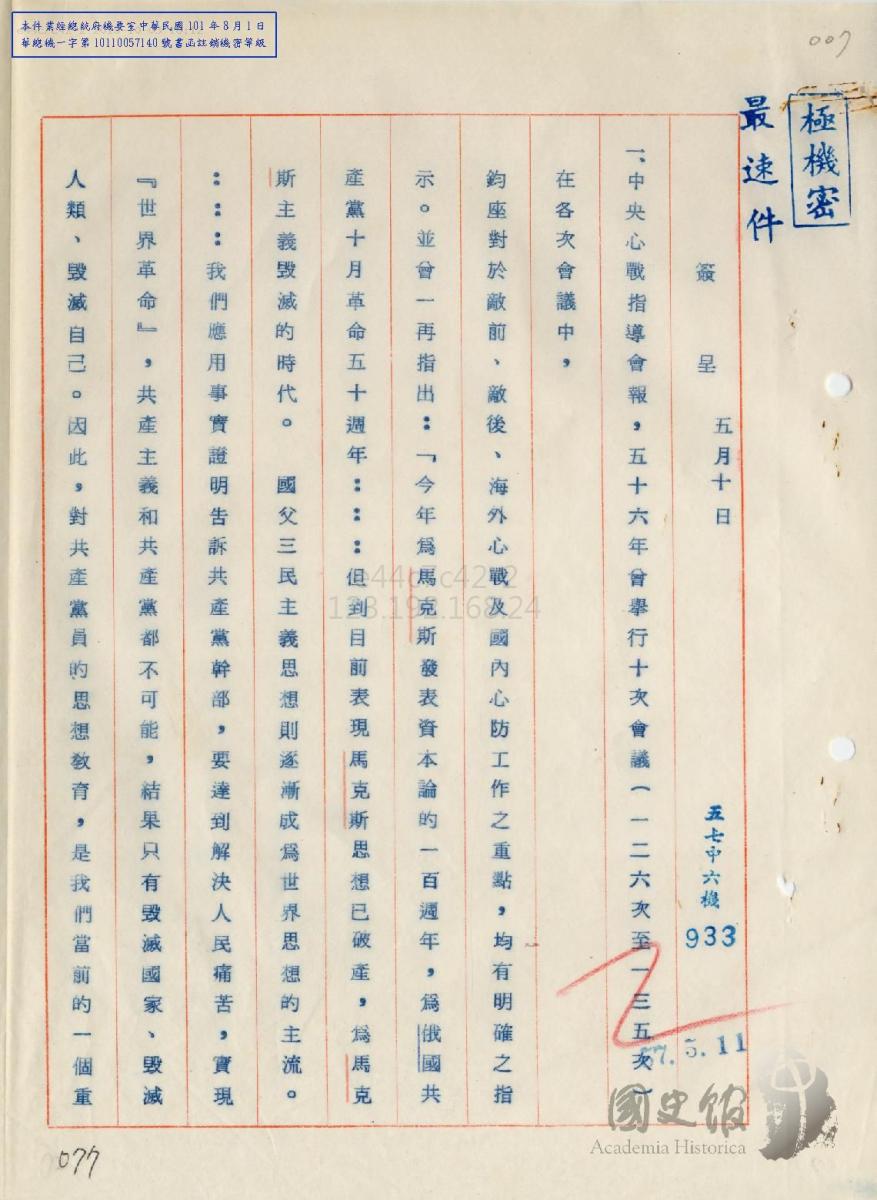 本件業經總統府機要室中華民國101年8月1日
華總機一字第10110057140號書函註銷機密等級
007
極機密
最速件
簽呈 五月十日
五七中六機
933
57.5.11
一、中央心戰指導會報，五十六年曾舉行十次會議（一二六次至一三五次）
在各次會議中，
鈞座對於敵前、敵後、海外心戰及國內心防工作之重點，均有明確之指
示。並曾一再指出：「今年爲馬克斯發表資本論的一百週年，爲俄國共
產黨十月革命五十週年：：：但到目前表現馬克斯思想已破產，爲馬克
斯主義毀滅的時代。　國父三民主義思想則逐漸成爲世界思想的主流。
：：：我們應用事實證明告訴共產黨幹部，要達到解決人民痛苦，實現
『世界革命』，共產主義和共產黨都不可能，結果只有毀滅國家、毀滅
人類、毀滅自己。因此，對共產黨員的思想教育，是我們當前的一個重
123.192.168.24
077
國史館
Academia Historica